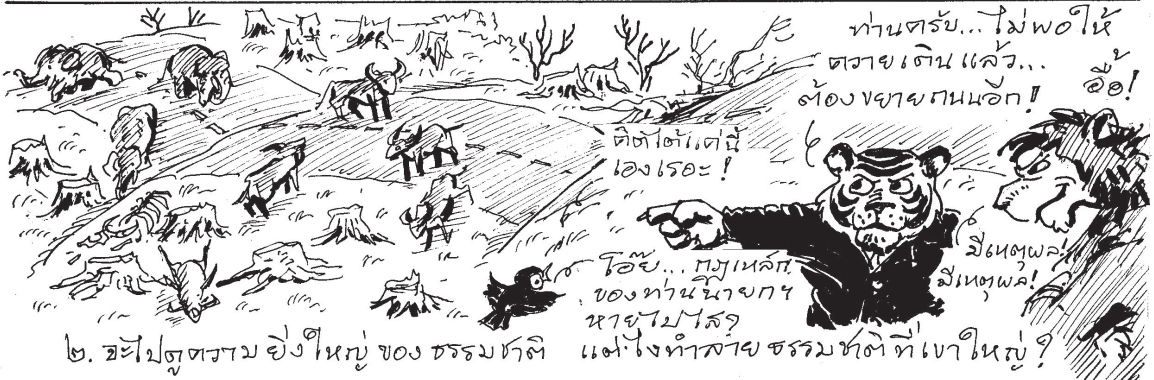 ท่านครับ... ไม่พอให้
ควายเดินแล้ว...
ต้องขยายถนนอีก!
อื้อ!
คิดได้แค่นี้
เองเรอะ!
มีเหตุผล!
มีเหตุผล!
โอ๊ย... กฎเหล็ก
ของท่านนายกฯ
หายไปไส?
๒. จะไปดูความยิ่งใหญ่ของธรรมชาติ แต่ไงทำลายธรรมชาติที่เขาใหญ่?